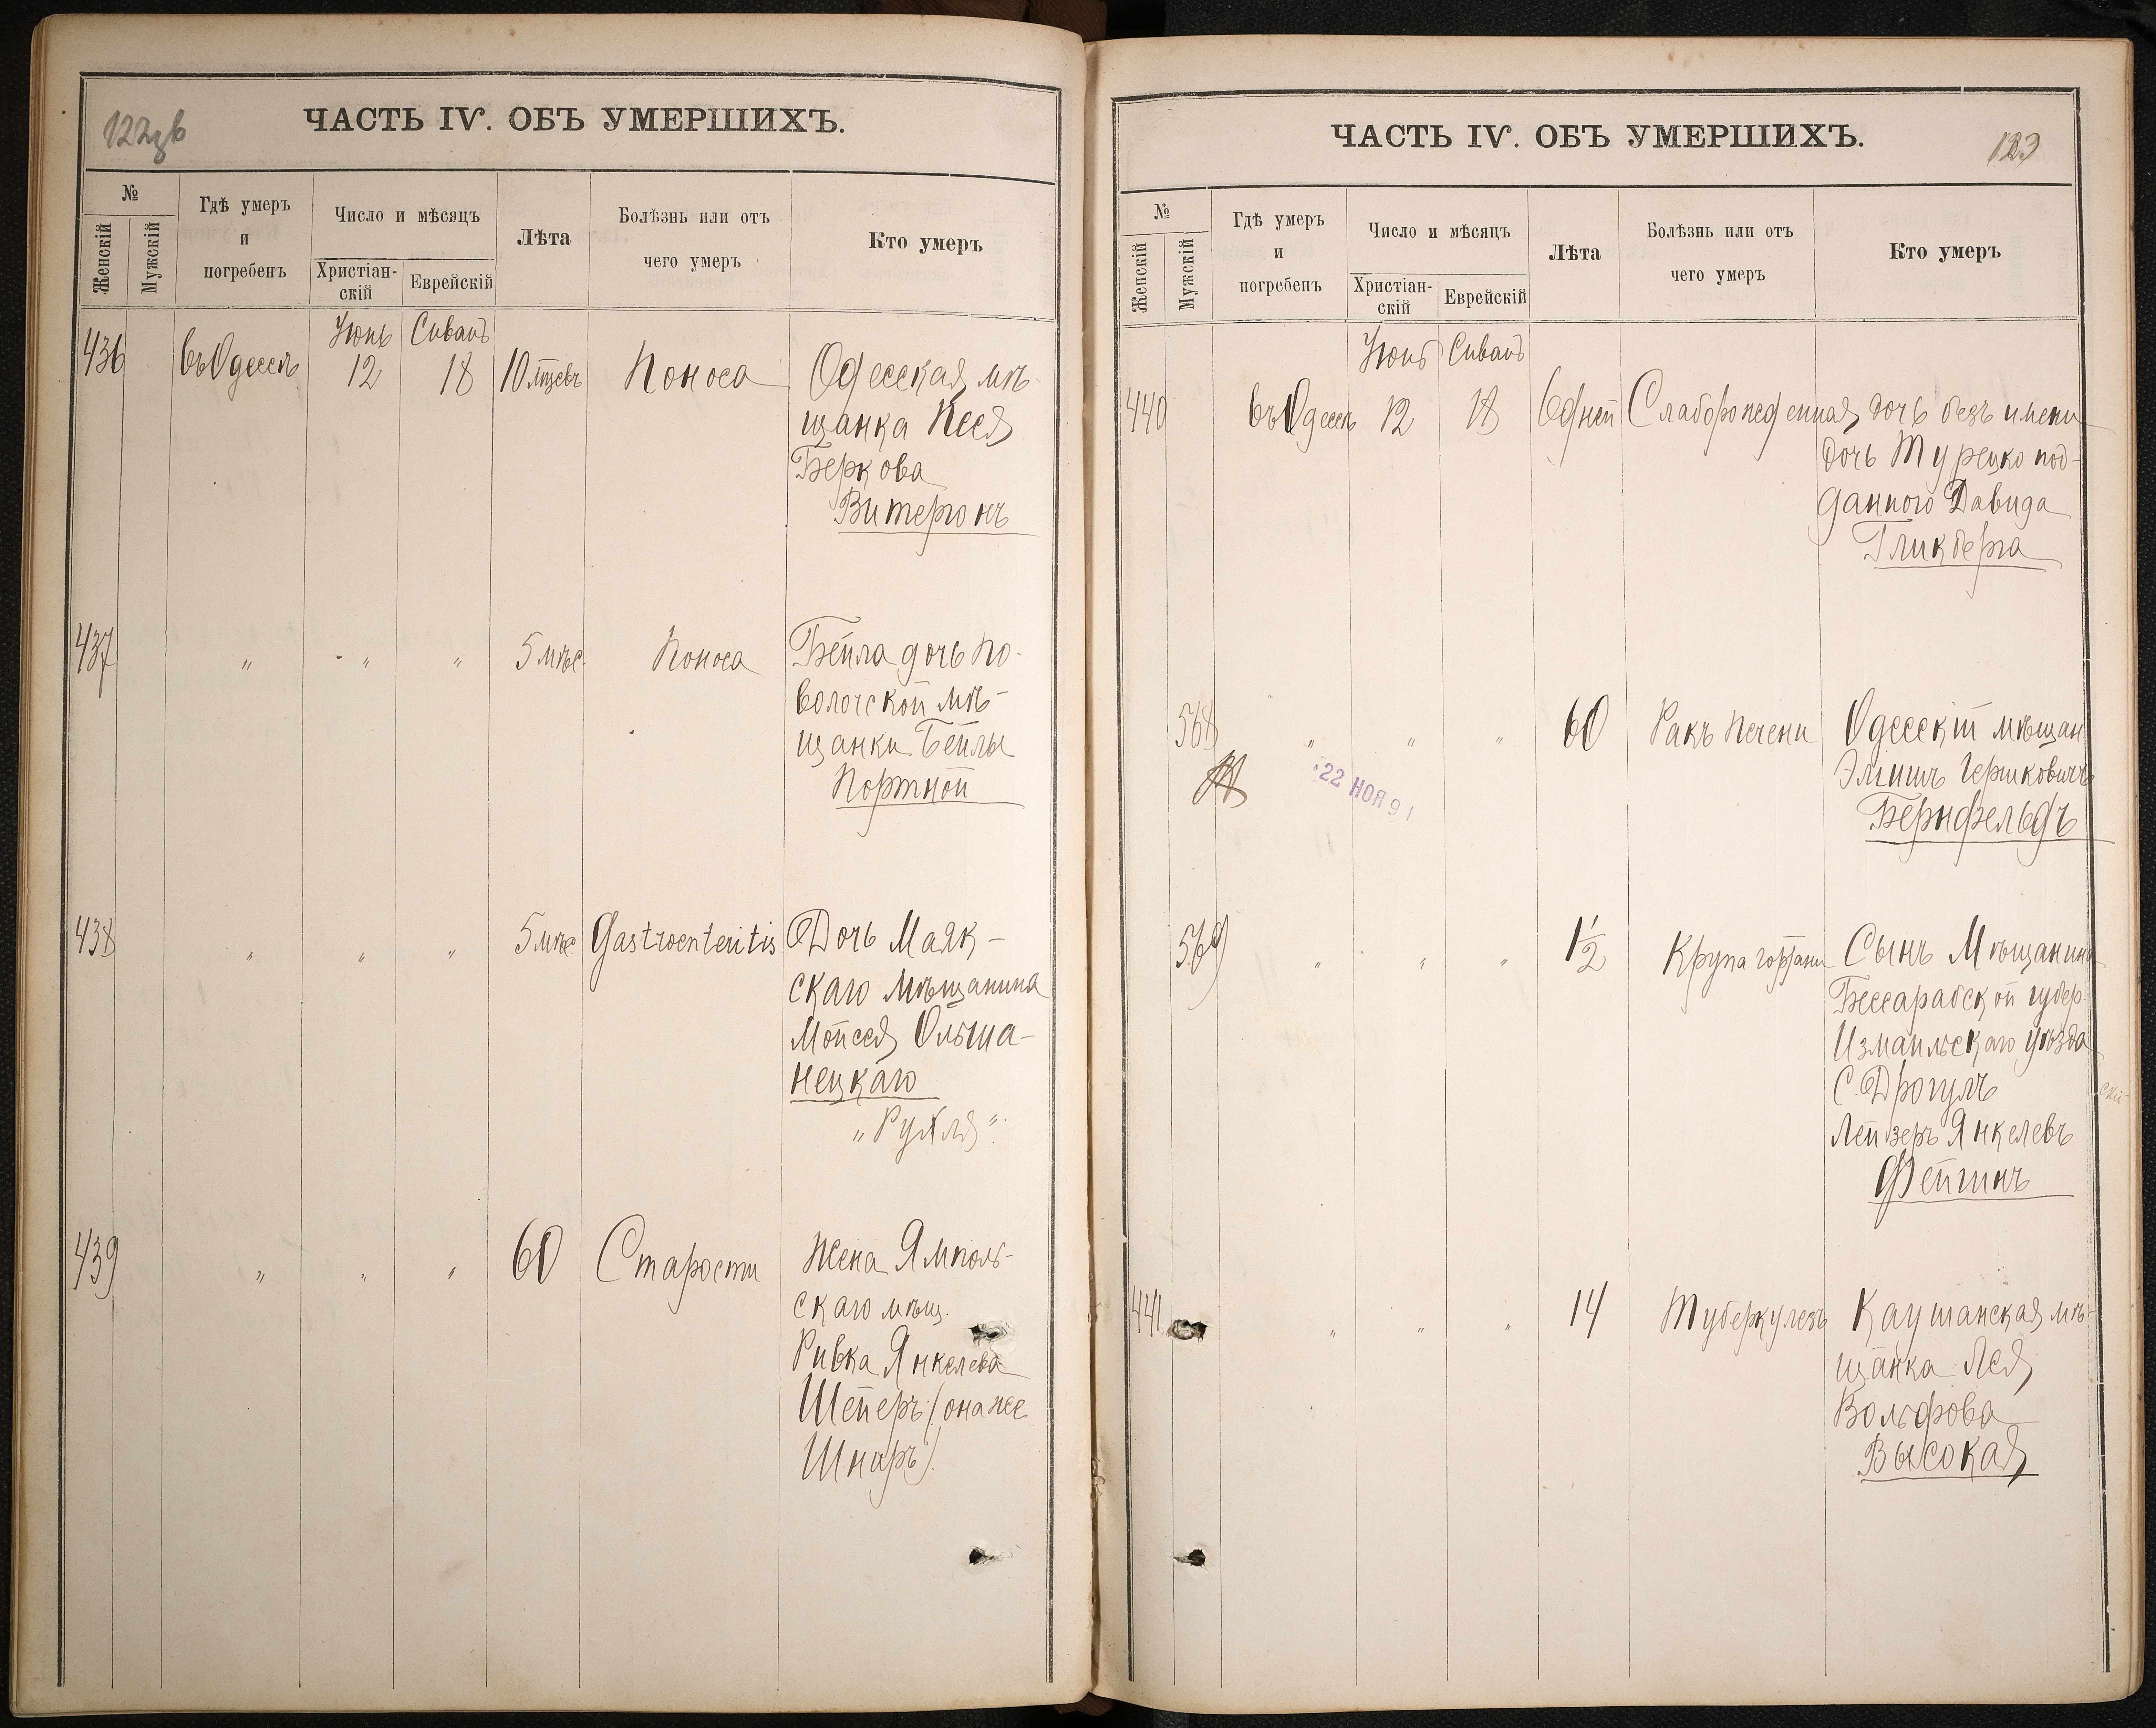 122об
ЧАСТЬ IV. ОБЪ УМЕРШИХЪ.
№
Женскій
Мужскій
Гдѣ умеръ
и
погребенъ
Число и мѣсяцъ
Христіан-
скій
Еврейскій
Лѣта
Болѣзнь или отъ
чего умеръ
Кто умеръ
Іюнь Сиванъ
436 въ Одессѣ 12 18 10 мѣсяцевъ Поноса Одесская мѣ-
щанка Песя
Беркова
Витергонъ
437 " " " 5 мѣс. Поноса Бейла дочь По-
волочской мѣ-
щанки Бейлы
Портной
438 " " " 5 мѣс Gastroenteritis Дочь Маяк-
скаго мѣщанина
Мойсея Ольша-
нецкаго
"Рухля"
439 " " " 60 Старости Жена Ямполь-
скаго мѣщ.
Ривка Янкелева
Шейеръ (она же
Шниръ).
ЧАСТЬ IV. ОБЪ УМЕРШИХЪ.
123
№
Женскій
Мужскій
Гдѣ умеръ
и
погребенъ
Число и мѣсяцъ
Христіан-
скій
Еврейскій
Лѣта
Болѣзнь или отъ
чего умеръ
Кто умеръ
Іюнь Сиванъ
440 въ Одессѣ 12 18 6 дней Слаборожденная дочь безъ имени
дочь Турецко под-
данного Давида
Гликберга
568 " " " 60 Ракъ Печени Одесскій мѣщан.
Гершковичъ
Бернфельдъ
22 НОЯ 91
569 " " " 1 1/2 Крупа гортани Сынъ Мѣщанина
Бессарабской губер.
Измаильскаго уѣзда
С. Дрогулъ
Лейзеръ Янкелевъ
Фейгинъ
441 " " " 14 Туберкулезъ Каушанская мѣ-
щанка Лея
Вольфова
Высокая